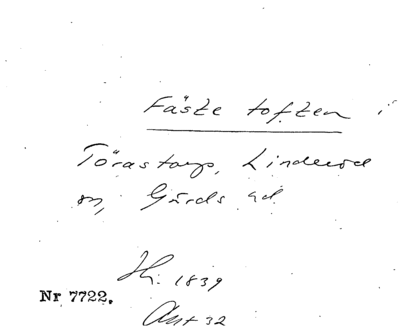 Fäste toften i
Törastorp, Linderöd
sn, Gärds hd
Hs. 1839
Nr 7722.
Ant 32